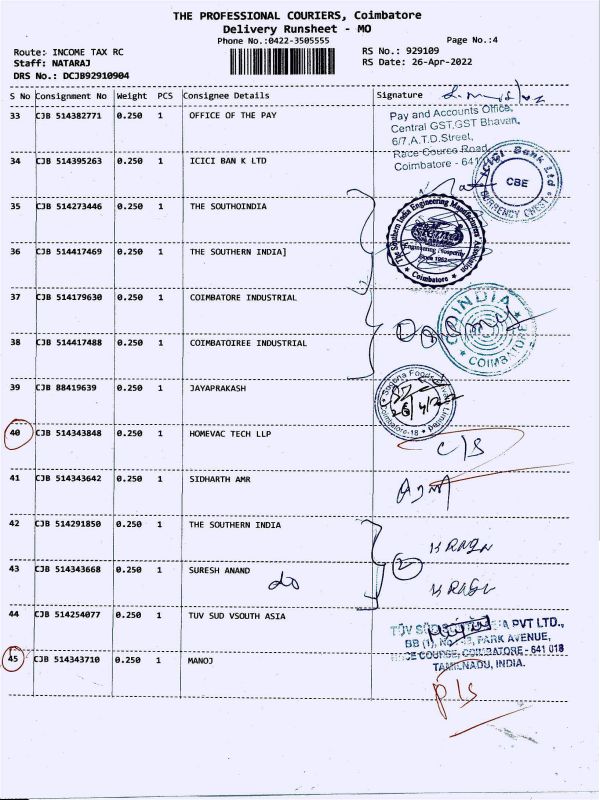 THE PROFESSIONAL COURIERS, Coimbatore
Delivery Runsheet - MO
Phone No.:0422-3505555
Page No.:4
Route: INCOME TAX RC
RS No.: 929109
Staff: NATARAJ
RS Date: 26-Apr-2022
DRS No.: DCJB92910904
S No Consignment No Weight PCS Consignee Details Signature
33 CJB 514382771 0.250 1 OFFICE OF THE PAY
Pay and Accounts Office,
Central GST,GST Bhavan,
6/7,A.T.D.Street,
Race Course Road,
Coimbatore - 641
34 CJB 514395263 0.250 1 ICICI BAN K LTD
ICICI Bank Ltd
CBE
CURRENCY CHEST
35 CJB 514273446 0.250 1 THE SOUTHOINDIA
The Southern India Engineering Manufacturers Association
Engineering Prosperity
Since 1952
Coimbatore
36 CJB 514417469 0.250 1 THE SOUTHERN INDIA]
37 CJB 514179630 0.250 1 COIMBATORE INDUSTRIAL
COINDIA
COIMBATORE
38 CJB 514417488 0.250 1 COIMBATOIREE INDUSTRIAL
39 CJB 88419639 0.250 1 JAYAPRAKASH
Foods Private Limited
26/4/22
Coimbatore-18
40 CJB 514343848 0.250 1 HOMEVAC TECH LLP
C/S
41 CJB 514343642 0.250 1 SIDHARTH AMR
42 CJB 514291850 0.250 1 THE SOUTHERN INDIA
2
43 CJB 514343668 0.250 1 SURESH ANAND
do
44 CJB 514254077 0.250 1 TUV SUD VSOUTH ASIA
TÜV SÜD PVT LTD.,
BB (1), PARK AVENUE,
RACE COURSE, COIMBATORE - 641 018
TAMILNADU, INDIA.
45 CJB 514343710 0.250 1 MANOJ
P/S